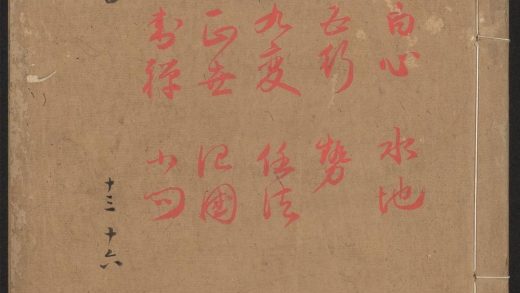 白心 水地
五行 勢
九変 任法
正世 治國
封禪 小問
十三 十六